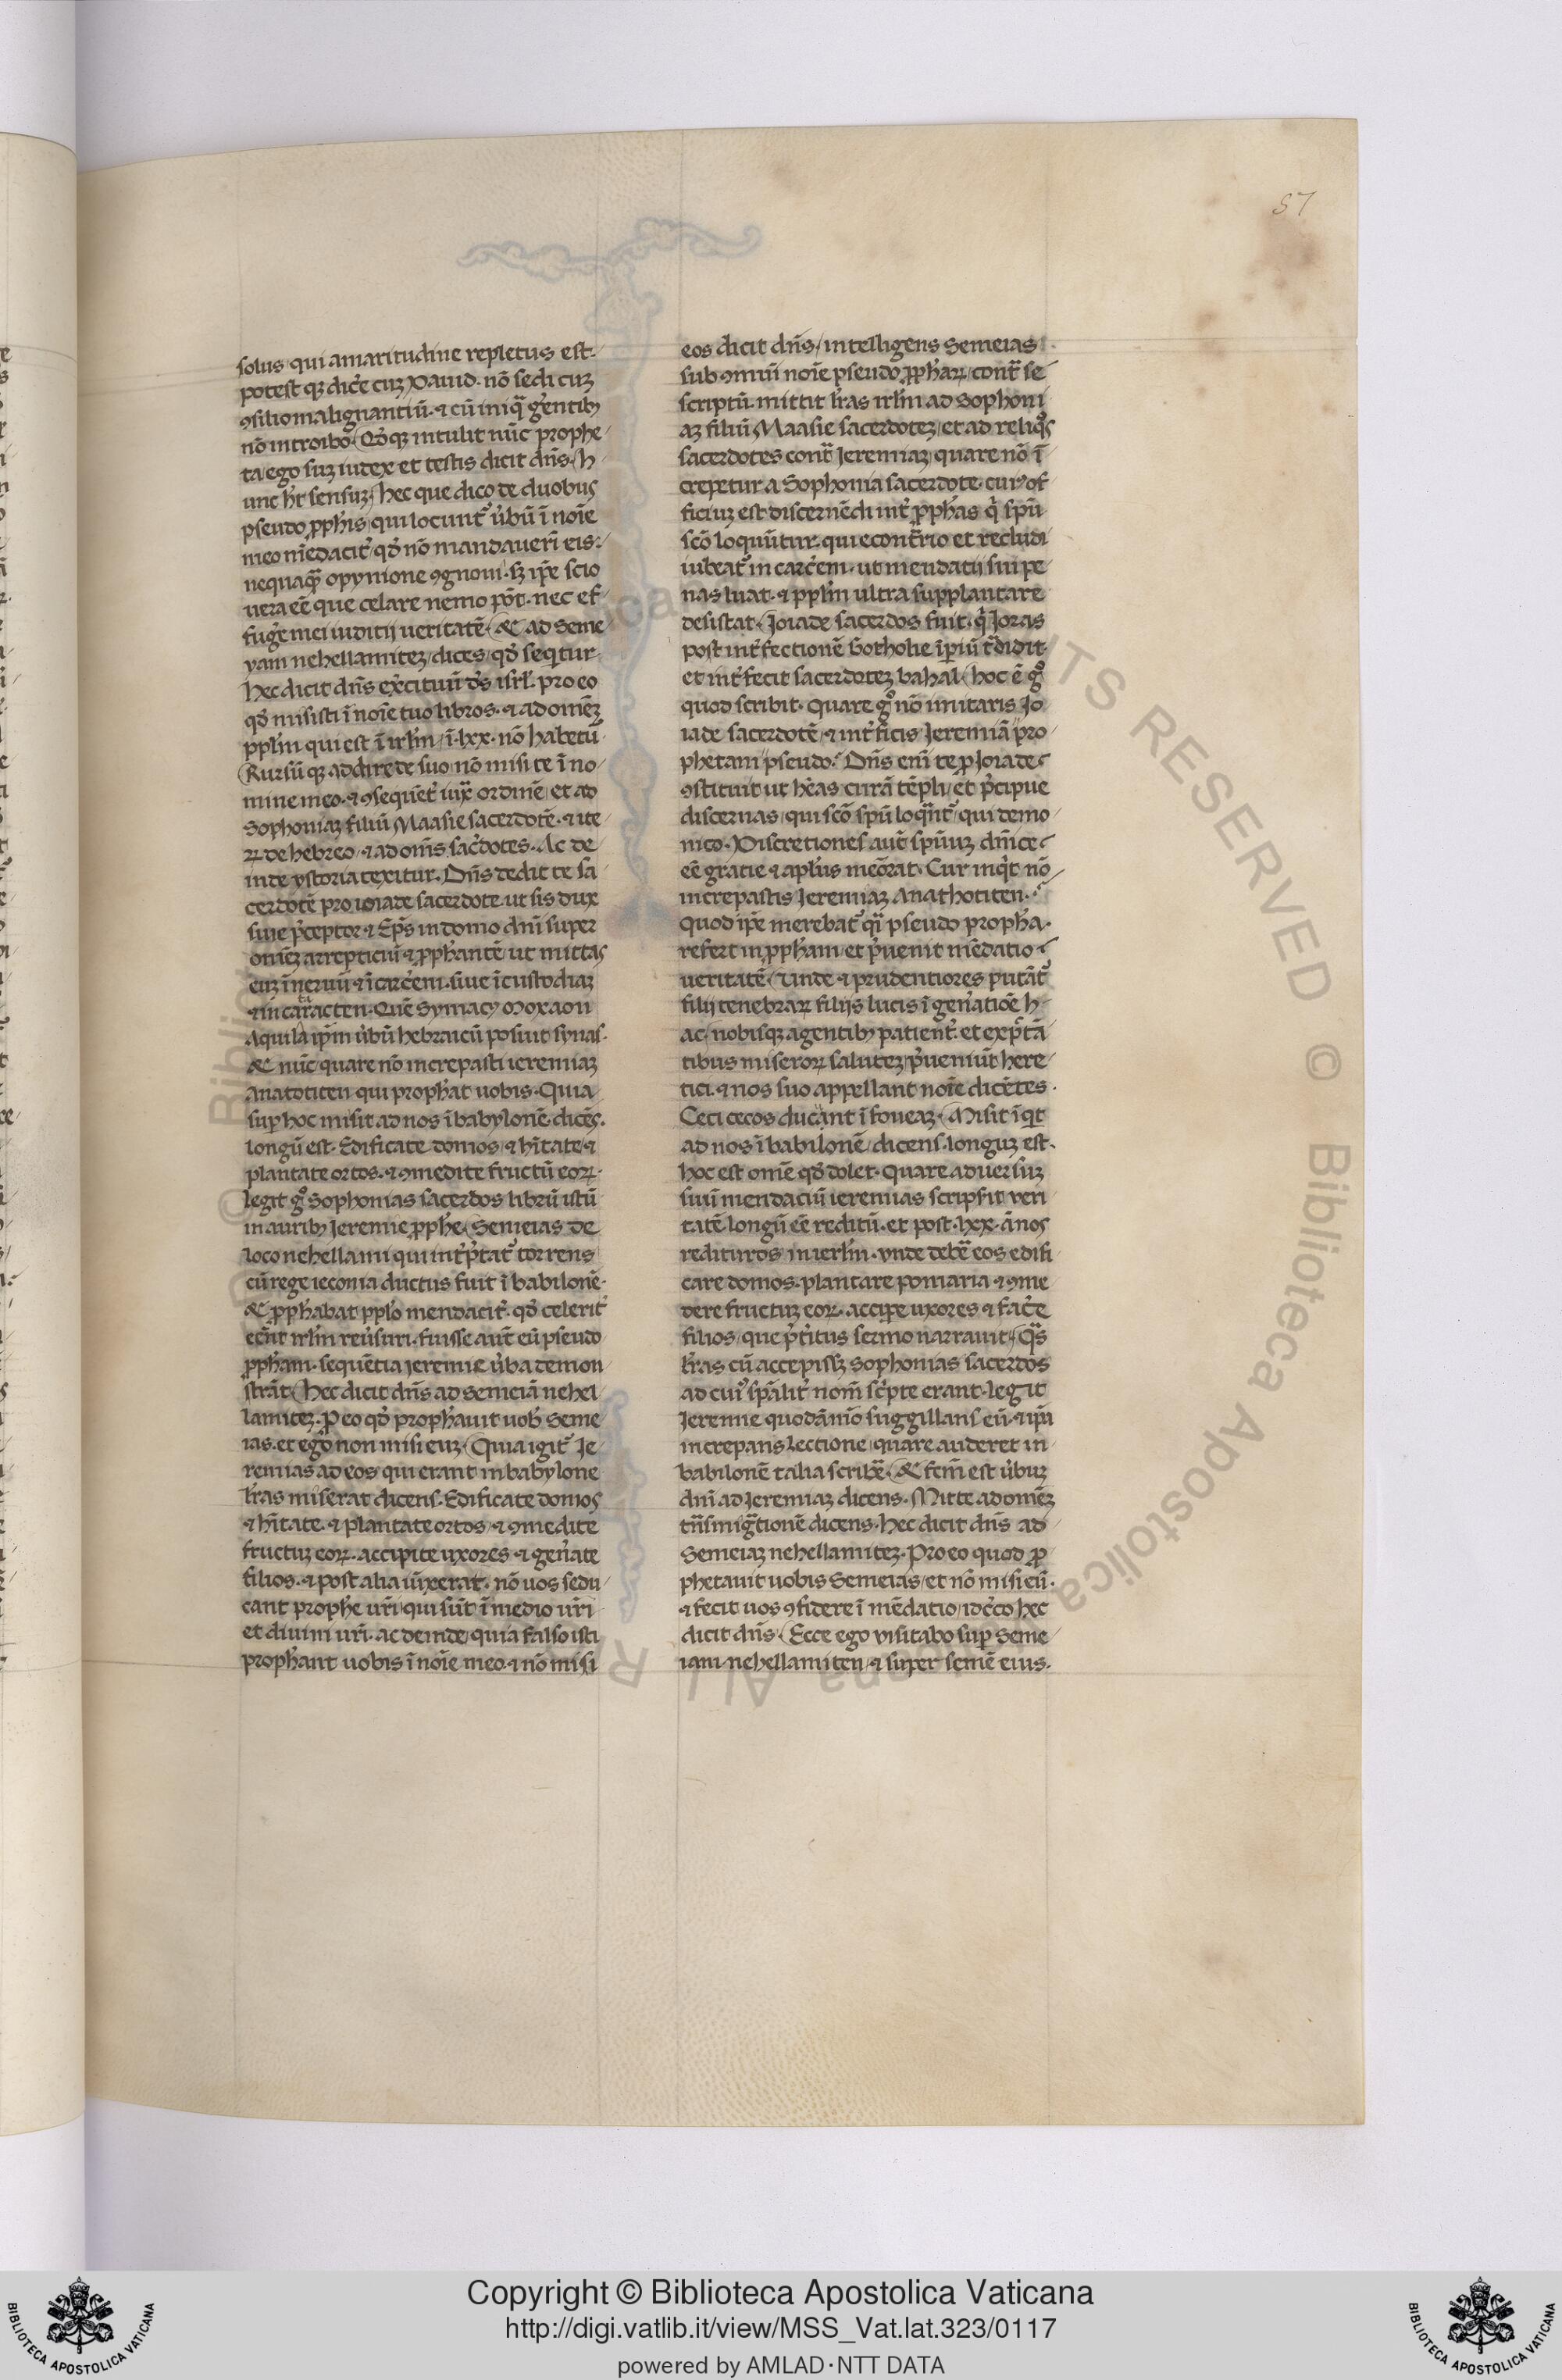 57
solus qui amaritudine repletus est.
potest qꝫ dic̄e cuꝫ Dauid. nō sedi cuꝫ
ꝯsilio malignantiū. ⁊ cū iniq̄ gerentibꝫ
nō introibo. Qd̓qꝫ intulit nūc prophe
ta ego suꝫ iudex et testis dicit dn̄s. h
unc hꝫ sensuꝫ. Hec que dico de duobus
pseudo ꝓph̄is qui locunt᷑ v̓bū ī noīe
meo mēdacit᷑ qd̓ nō mandauerī eis.
nequaqꝫ opynione ꝯgnoui. sꝫ ip̄e scio
uera eē que celare nemo pōt. nec ef
fug̓e mei iuditij ueritatē. & ad Seme
yam nehellamiteꝫ dices qd̓ seqitur
Hec dicit dn̄s exc̓ituū dr̄s isrl̄. pro eo
qd̓ misisti ī noīe tuo libros. ⁊ ad omēꝫ
ppl̄m qui est ī irl̄m ī. lxx. nō habetū
Rursū qꝫ addire de suo nō misi te ī no
mine meo. ⁊ ꝯsequēt᷑ iux̄ ordinē et ad
Sophoniaꝫ filiū Maasie sacerdotē. ⁊ ite
ꝝ de hebreo ⁊ ad om̄s sac̓dotes. Ac de
inde ystoria texitur. Dn̄s dedit te sa
cerdotē pro ioiade sacerdote ut sis dux
siue p̓ceptor ⁊ Ep̄s in domo dn̄i super
omēꝫ arrepticiū ⁊ ꝓph̄antē ut mittas
euꝫ ī neruū ⁊ ī carc̓em. siue ī custodiaꝫ
⁊ in caracten. Quē Symacꝫ moxaon
Aquila ip̄m v̓bū hebraicū posuit synas.
& nūc quare nō increpasti ieremiaꝫ
anatotiten qui proph̄at uobis. Quia
suꝑ hoc misit ad nos ī babylonē. dicēs.
longū est. Edificate domos ⁊ hītate ⁊
plantate ortos. ⁊ ꝯmedite fructū eoꝝ.
legit gͦ Sophonias sacerdos librū istū
in auribꝫ Jeremie ꝓph̄e. Semeias de
loco nehellami qui int᷑p̓tat᷑ torrens
cū rege ieconia ductus fuit ī babilonē.
& ꝓph̄abat ppl̄o mendacit᷑. qd̓ celerit᷑
eēnt irl̄m reu̓suri. fuisse aut̄ eū pseudo
ꝓph̄am. sequētia jeremie v̓ba demon
strāt. Hec dicit dn̄s ad semeiā nehel
lamiteꝫ. Pro eo qd̓ proph̄auit uob̄ Seme
ias. et ego non misi euꝫ. Quia igit᷑ Je
remias ad eos qui erant in babylone
lr̄as miserat dicens. Edificate domos
⁊ hītate. ⁊ plantate ortos ⁊ ꝯmedite
fructuꝫ eoꝝ. accipite uxores ⁊ gen̓ate
filios. ⁊ post alia iūxerat. nō uos sedu
cant prophe ur̄i qui sūt ī medio ur̄i
et diuini ur̄i. ac deinde quia falso isti
proph̄ant uobis ī noīe meo. ⁊ nō misi
eos dicit dn̄s intelligens Semeias
sub ꝯmuū noīe pseudo ꝓph̄aꝝ cont̄ se
scriptū. mittit lr̄as irl̄m ad Sophoni
aꝫ filiū Maasie sacerdoteꝫ et ad reliqͦs
sacerdotes cont̄ Jeremiaꝫ quare nō ī
crepetur a Sophonia sacerdote. cui᷒ of
ficiuꝫ est discernēdi int᷑ ꝓph̄as q̓ spū
scō loquūtur. qui econt̄rio et recludi
iubeat᷑ in carc̓em. ut mendatij sui pe
nas luat. ⁊ ppl̄m ultra supplantare
desistat. Joiade sacerdos fuit. q̓ Joras
post int᷑fectionē Gotholie īperiū t̄didit
et int᷑fecit sacerdoteꝫ bahal. hoc ē gͦ
quod scribit. Quare gͦ nō imitaris Jo
iade sacerdotē ⁊ int᷑ficis Jeremiā pro
phetam pseudo. Dn̄s enī te ꝓ Joiade
ꝯstituit ut hēas curā tēpli et p̓cipue
discernas qui scō spū loqūnt᷑ qui demo
nico. Discretiones aut̄ spūuꝫ dn̄ice
eē gratie ⁊ apl̄us meōrat. Cur inq̓t nō
increpastis Jeremiaꝫ Anathotiten.
Quod ip̄e merebat᷑ qͣi pseudo proph̄a.
refert in ꝓph̄am et p̓uenit mēdatio
ueritatē. Unde ⁊ prudentiores putāt᷑
filij tenebraꝝ filijs lucis ī gen̓atiōe h
ac. nobisqꝫ agentibꝫ patient᷑. et exp̄tā
tibus miseroꝝ saluteꝫ p̓ueniūt here
tici. ⁊ nos suo appellant noīe dicētes.
Ceci cecos ducant ī foueaꝫ. Misit īqit
ad nos ī babilonē dicens. longuꝫ est.
hoc est omē qd̓ dolet. Quare aduersuꝫ
suū mendaciū ieremias scripsit ueri
tatē longū eē reditū. et post. lxx. ānos
redituros in ierl̄m. vnde debē eos edifi
care domos. plantare pomaria ⁊ ꝯme
dere fructuꝫ eoꝝ. accipe uxores ⁊ fac̓e
filios que p̓titus sermo narrauit. Qͣs
lr̄as cū accepissꝫ Sophonias sacerdos
ad cui᷒ spālit᷑ nom̄ sc̓pte erant. legit
Jeremie quodāmō suggillans eū. ⁊ ip̄a
increpans lectione quare auderet in
babilonē talia scribē. & fcm̄ est v̓buꝫ
dn̄i ad Jeremiaꝫ dicens. Mitte ad omēꝫ
tn̄smigͣtionē dicens. Hec dicit dn̄s ad
Semeiaꝫ nehellamiteꝫ. Pro eo quod ꝓ
phetauit uobis Semeias et nō misi eū.
⁊ fecit uos ꝯfidere ī mēdatio idc̓co hec
dicit dn̄s. Ecce ego visitabo suꝑ Seme
iam nehellamiten ⁊ super semē eius.
Copyright © Biblioteca Apostolica Vaticana
http://digi.vatlib.it/view/MSS_Vat.lat.323/0117
powered by AMLAD·NTT DATA
BIBLIOTECA APOSTOLICA VATICANA
BIBLIOTECA APOSTOLICA VATICANA